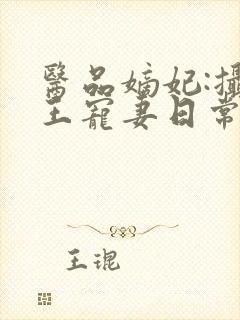 醫品嫡妃:攝
王寵妻日常
王琨